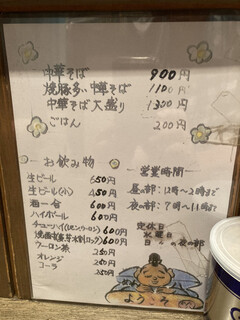 中華そば 900円
焼豚多い中華そば 1100円
中華そば大盛り 1300円
ごはん 200円
お飲み物
生ビール 650円
生ビール(小) 450円
酒一合 600円
ハイボール 600円
チューハイ(レモン,ウーロン) 600円
焼酎(麦,芋,水割,ロック) 600円
ウーロン茶 250円
オレンジ 250円
コーラ 250円
営業時間
昼の部:12時〜2時まで
夜の部:7時〜11時
定休日
水曜日
日の夜の部
ようこそ